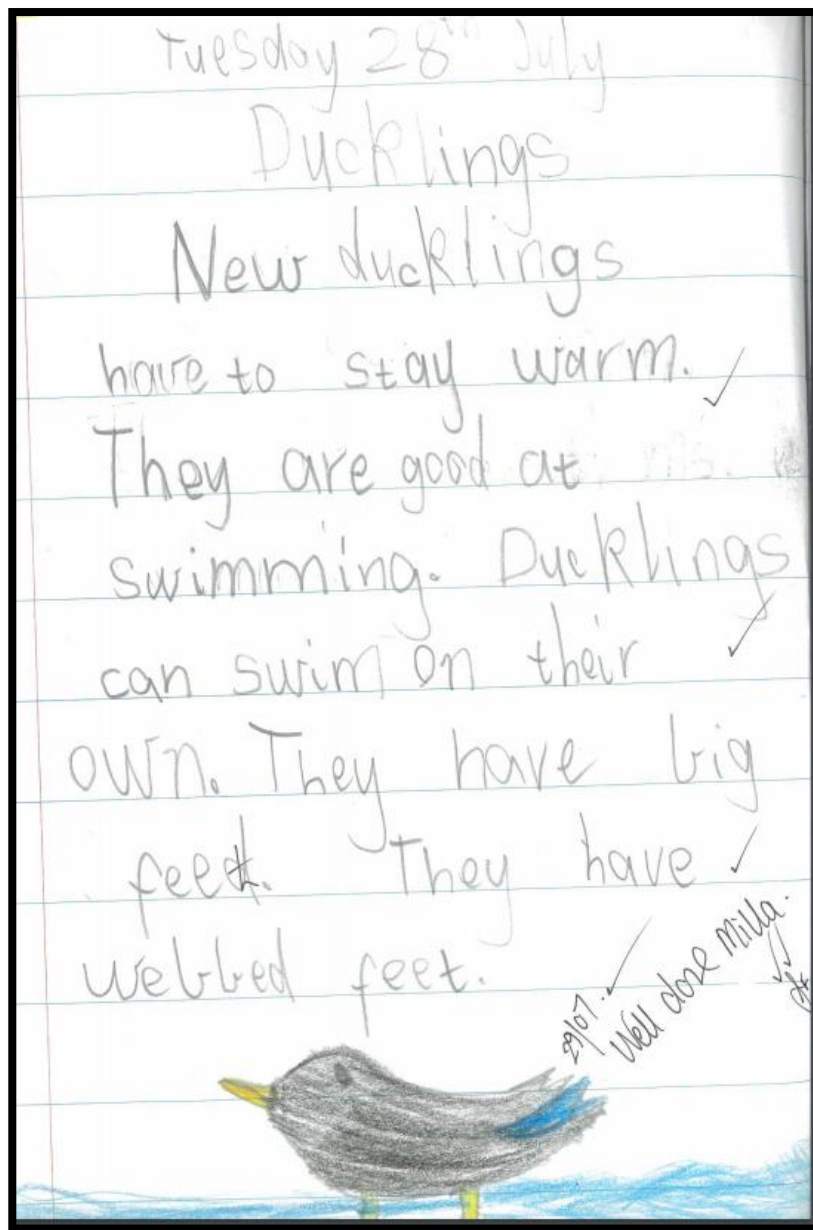 Tuesday 28th July
Ducklings
New ducklings
have to stay warm.
They are good at
swimming. Ducklings
can swim on their
own. They have big
feet. They have
webbed feet.
29/07.
Well done Milla.